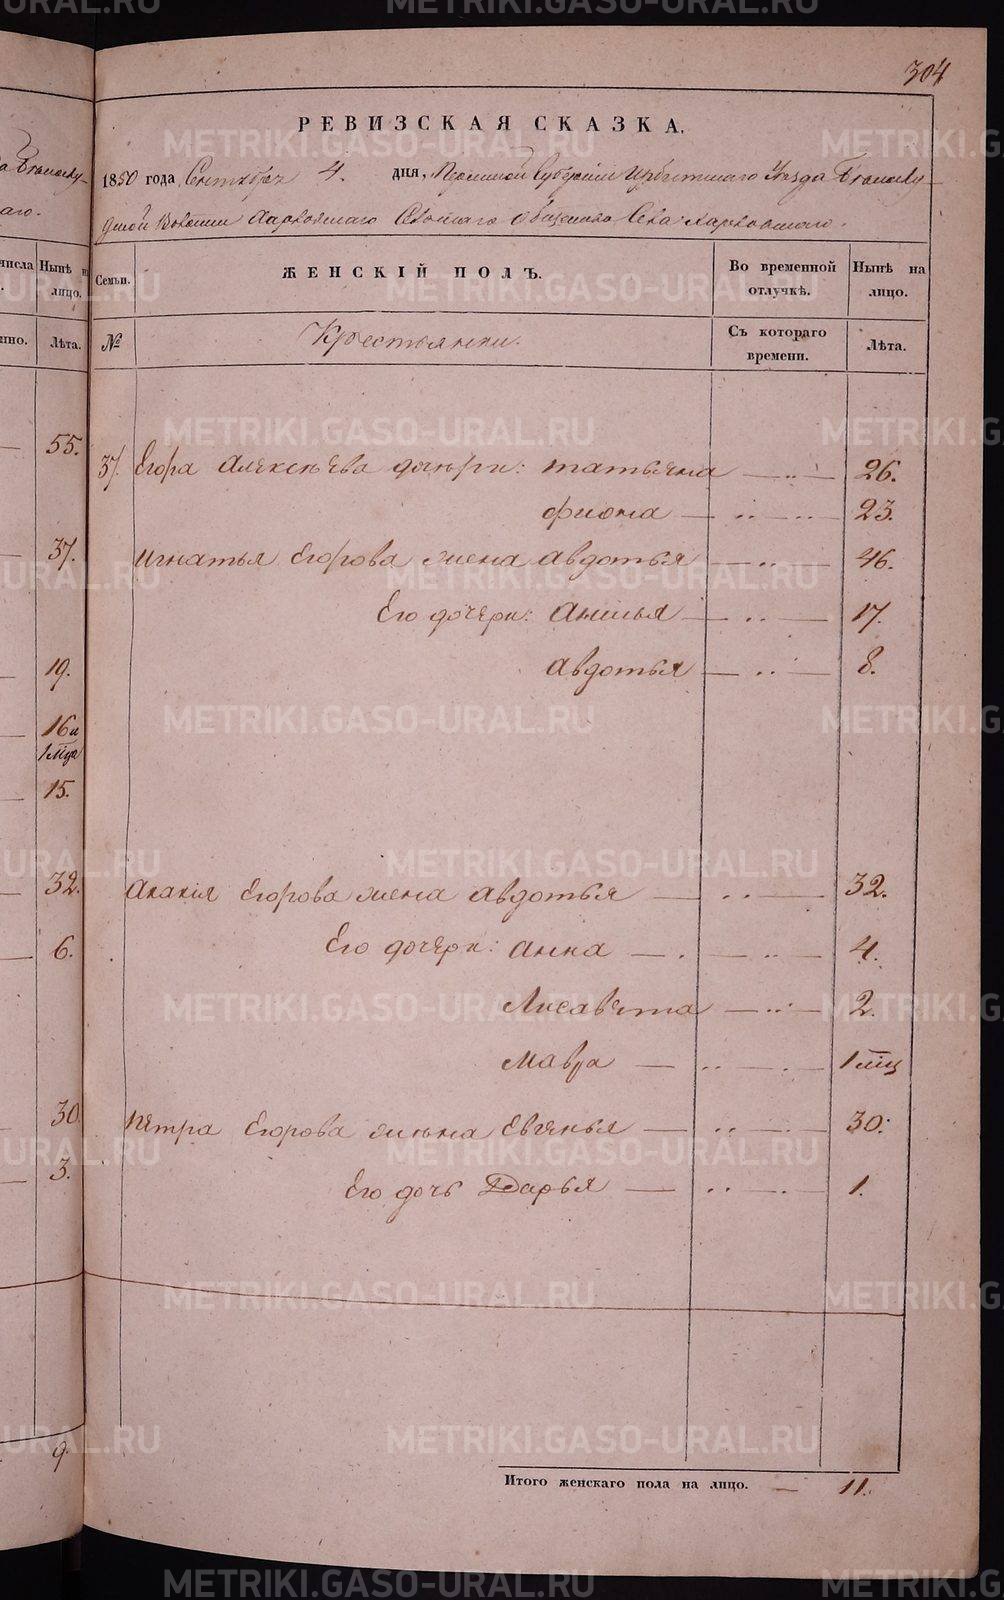 304
РЕВИЗСКАЯ СКАЗКА.
1850 года Сентября 4. дня, Пермской Губернiи Ирбитскаго Уезда
Волости Харловскаго Сельскаго общества Села Харловскаго.
Семьи. ЖЕНСКIЙ ПОЛЪ. Во временной отлучкѣ. Нынѣ на лицо.
№ Крестьянки. Съ котораго времени. Лѣта.
37. Егора Алексѣева дочери: татьяна 26.
фиона 23.
Игнатья Егорова жена авдотья 46.
Его дочери: Анисья 17.
авдотья 8.
Акакiя Егорова жена авдотья 32.
Его дочери: анна 4.
Лисавета 2.
Мавра 1 мѣц
Петра Егорова жена Евгенья 30.
Его дочь Дарья 1.
Итого женскаго пола на лицо. 11.
числа Нынѣ на лицо.
Лѣта.
55.
37.
19.
16 и
1 мѣця
15.
32.
6.
30
3.
9.
METRIKI.GASO-URAL.RU